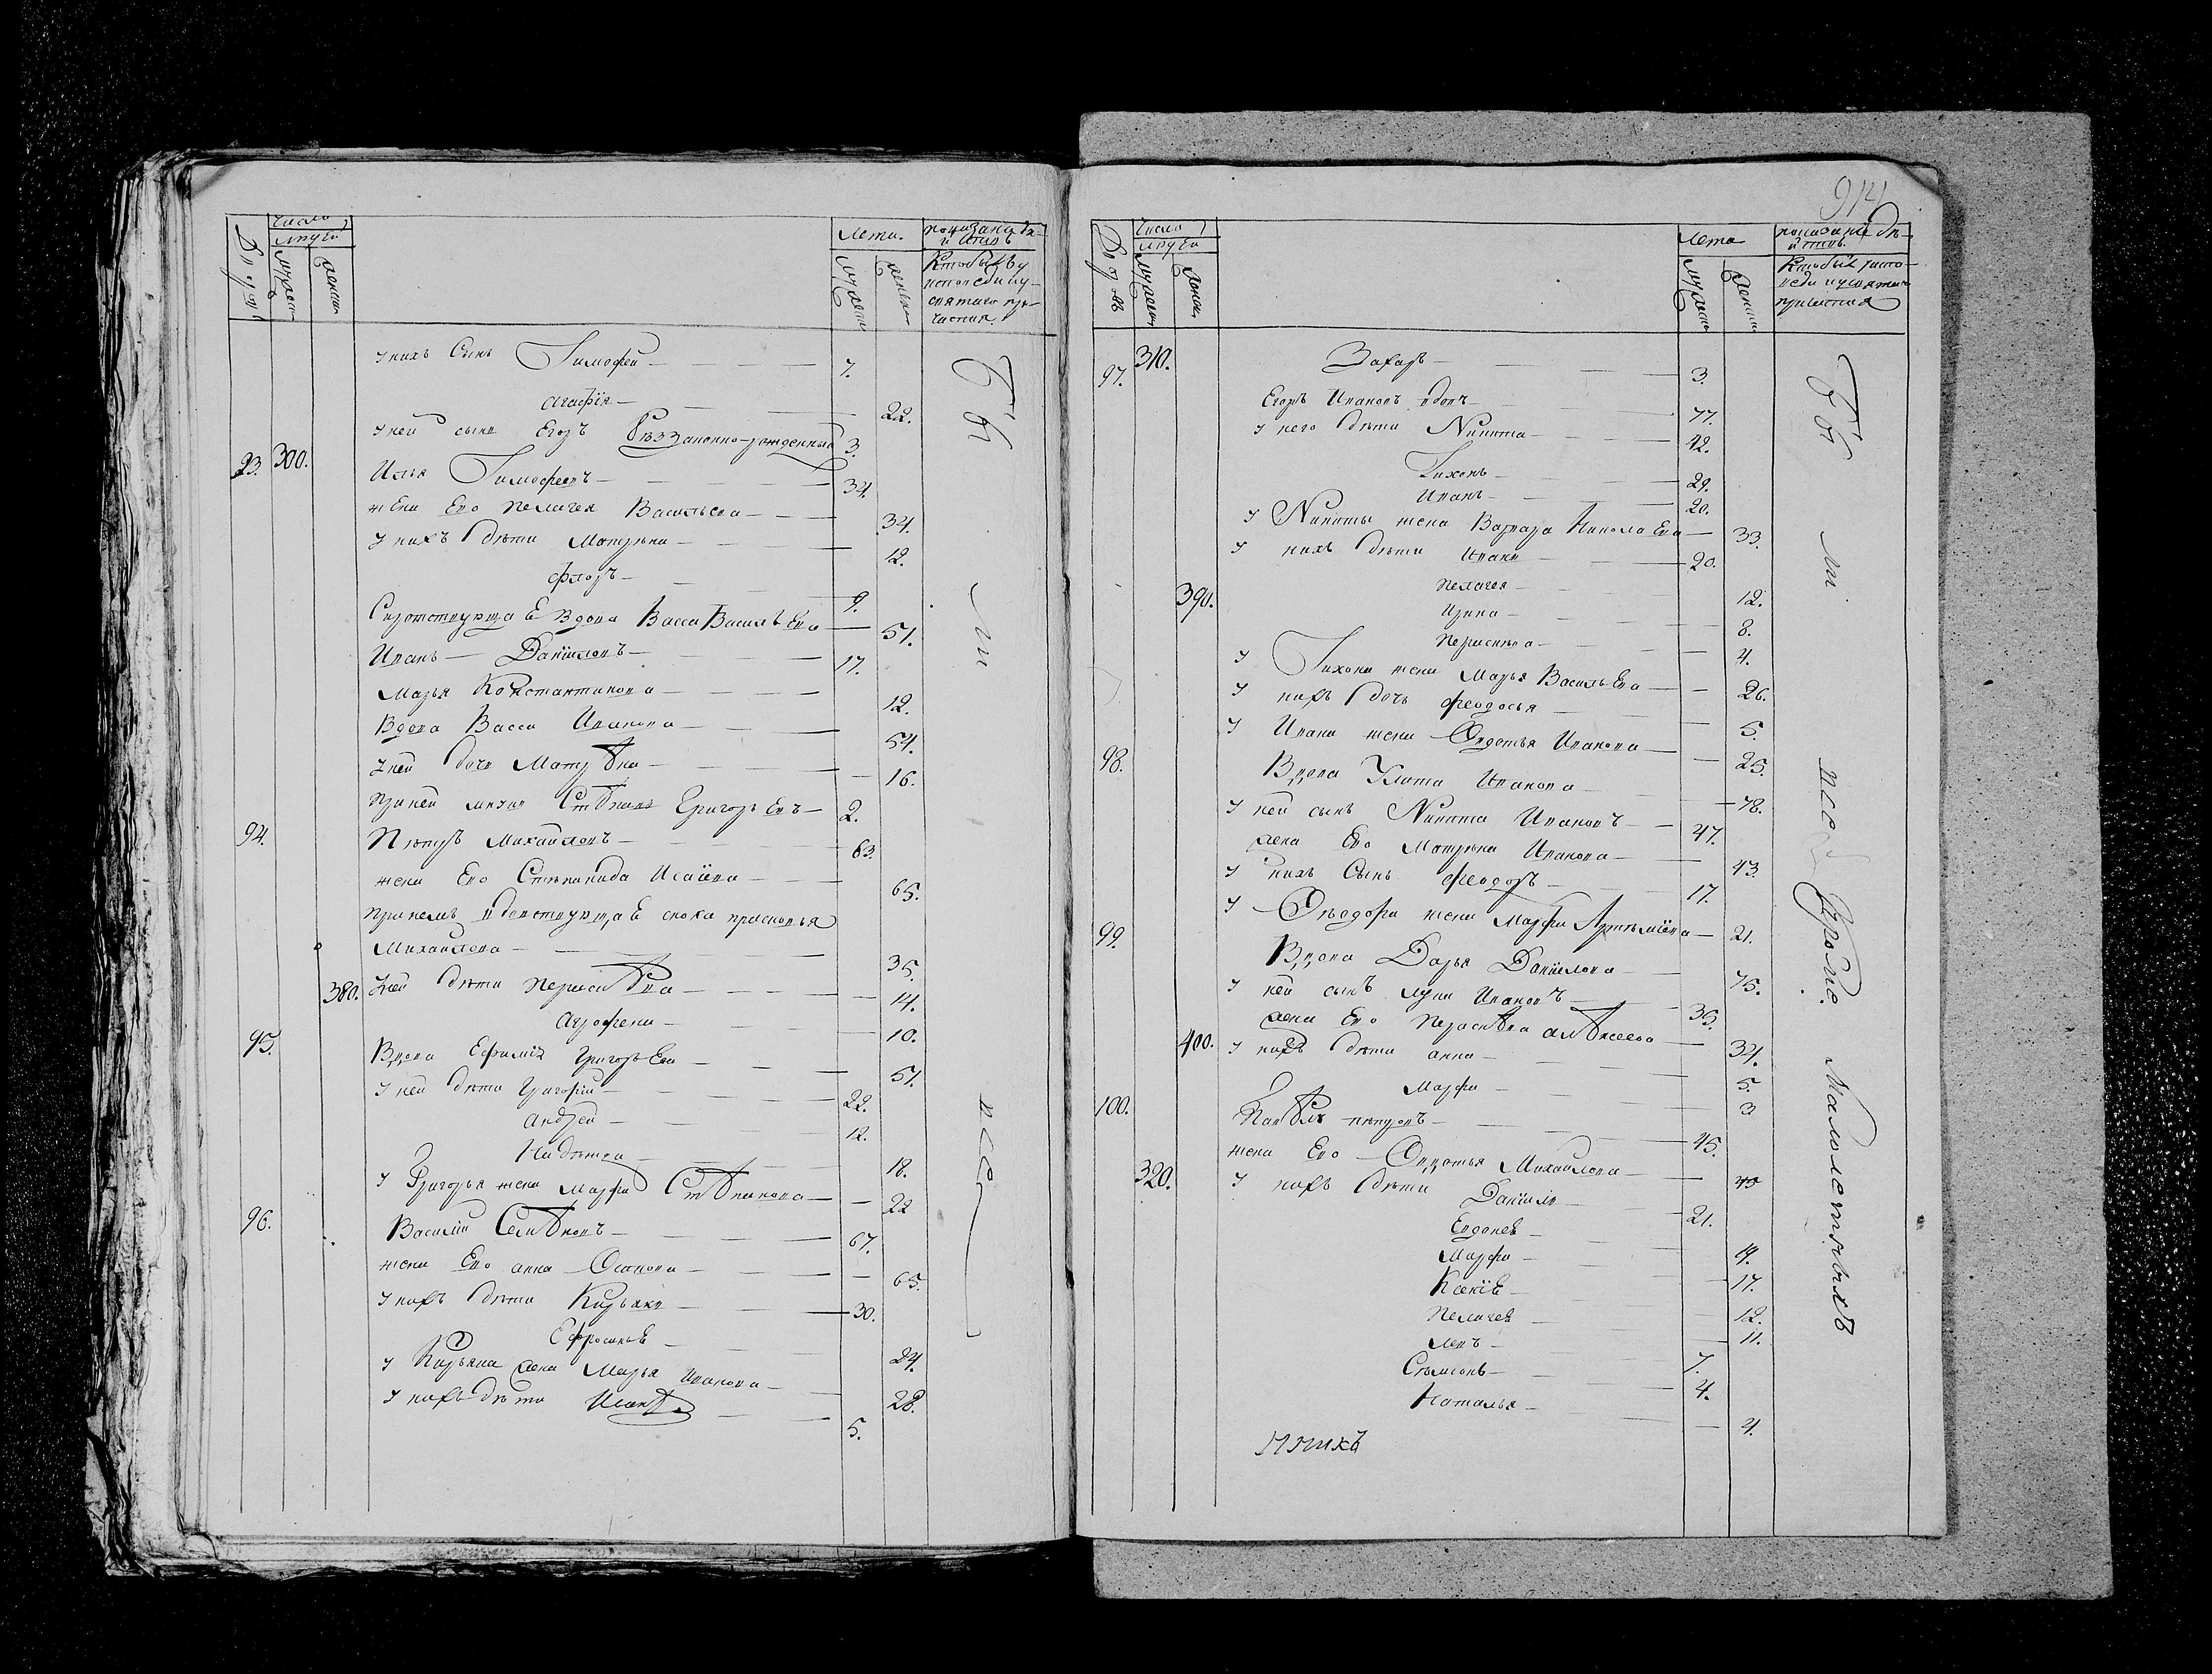 число
людей
Дворовъ
мужеска
женска
Лета.
мужеска
женска
показание дѣйствъ
Кто былъ у
исповеди и у
святаго при-
частия.
у нихъ Сынъ Тимофей — 7.
Агафія — 22.
у ней сынъ Егоръ Беззаконно-рожденный 3.
93. 300. Илья Тимофеевъ — 34.
жена Ево Пелагея Васильева — 34.
у нихъ дѣти Матрѣна — 12.
Флоръ — 9.
Сиротствующая Вдова Васса Васильева — 51.
Иванъ — Данииловъ — 17.
Марья Константинова — 12.
Вдова Васса Иванова — 54.
у ней дочь Матрѣна — 16.
при ней Стѣпанъ Григорьевъ — 2.
94. Пѣтръ Михайловъ — 63.
жена Ево Стѣпанида Исаиева — 65.
При немъ вдовствующая сноха Прасковья
Михайлова — 35.
380. у ней дѣти Парасковѣа — 14.
Агрофена — 10.
95. Вдова Ефимия Григорьева — 51.
у ней дѣти Григорий — 22.
Андрей — 12.
Надѣжда — 18.
у Григорья жена Марфа Стѣпанова — 22
96. Василий Семѣновъ — 67.
жена Ево Анна Осипова — 65.
у нихъ дѣти Кирьянъ — 30.
Ефросинья — 24.
у Кирьяна жена Марья Иванова — 28.
у нихъ дѣти Исакъ — 5.
Бы
ли
все
914
число
людей
Дворовъ
мужеска
женска
Лета
мужеска
женска
показание дѣ-
йствъ.
Кто былъ у испо-
веди и у святаго
причастия
310. Захаръ — 3.
97. Егоръ Ивановъ вдовъ — 77.
у него дѣти Никита — 42.
Тихонъ — 29.
Иванъ — 20.
у Никиты жена Варвара Николаева — 33.
у нихъ дѣти Иванъ — 20.
Пелагея — 12.
390. Ирина — 8.
Парасковѣа — 4.
у Тихона жена Марья Васильева — 26.
у нихъ дочь Феодосья — 5.
у Ивана жена Овдотья Иванова — 25.
98. Вдова Улита Иванова — 78.
у ней сынъ Никита Ивановъ — 47.
жена Ево Матрѣна Иванова — 43.
у нихъ Сынъ Феодоръ — 17.
у Фѣодора жена Марфа Артѣмиева — 21.
99. Вдова Дарья Даниилова — 75.
у ней сынъ Лука Ивановъ — 35.
жена Ево Парасковѣа Алѣксеева — 34.
400. у нихъ дѣти Анна — 5.
Марфа — 3
100. Павѣлъ Пѣтровъ — 45.
жена Ево Овдотья Михайлова — 45
320. у нихъ дѣти Даниилъ — 21.
Евдокея — 19.
Марфа — 17.
Ксения — 12.
Пелагея — 11.
Левъ — 7.
Сѣмионъ — 4.
Наталья — 4.
Бы
ли
все
Кромѣ.
Малолетныхъ